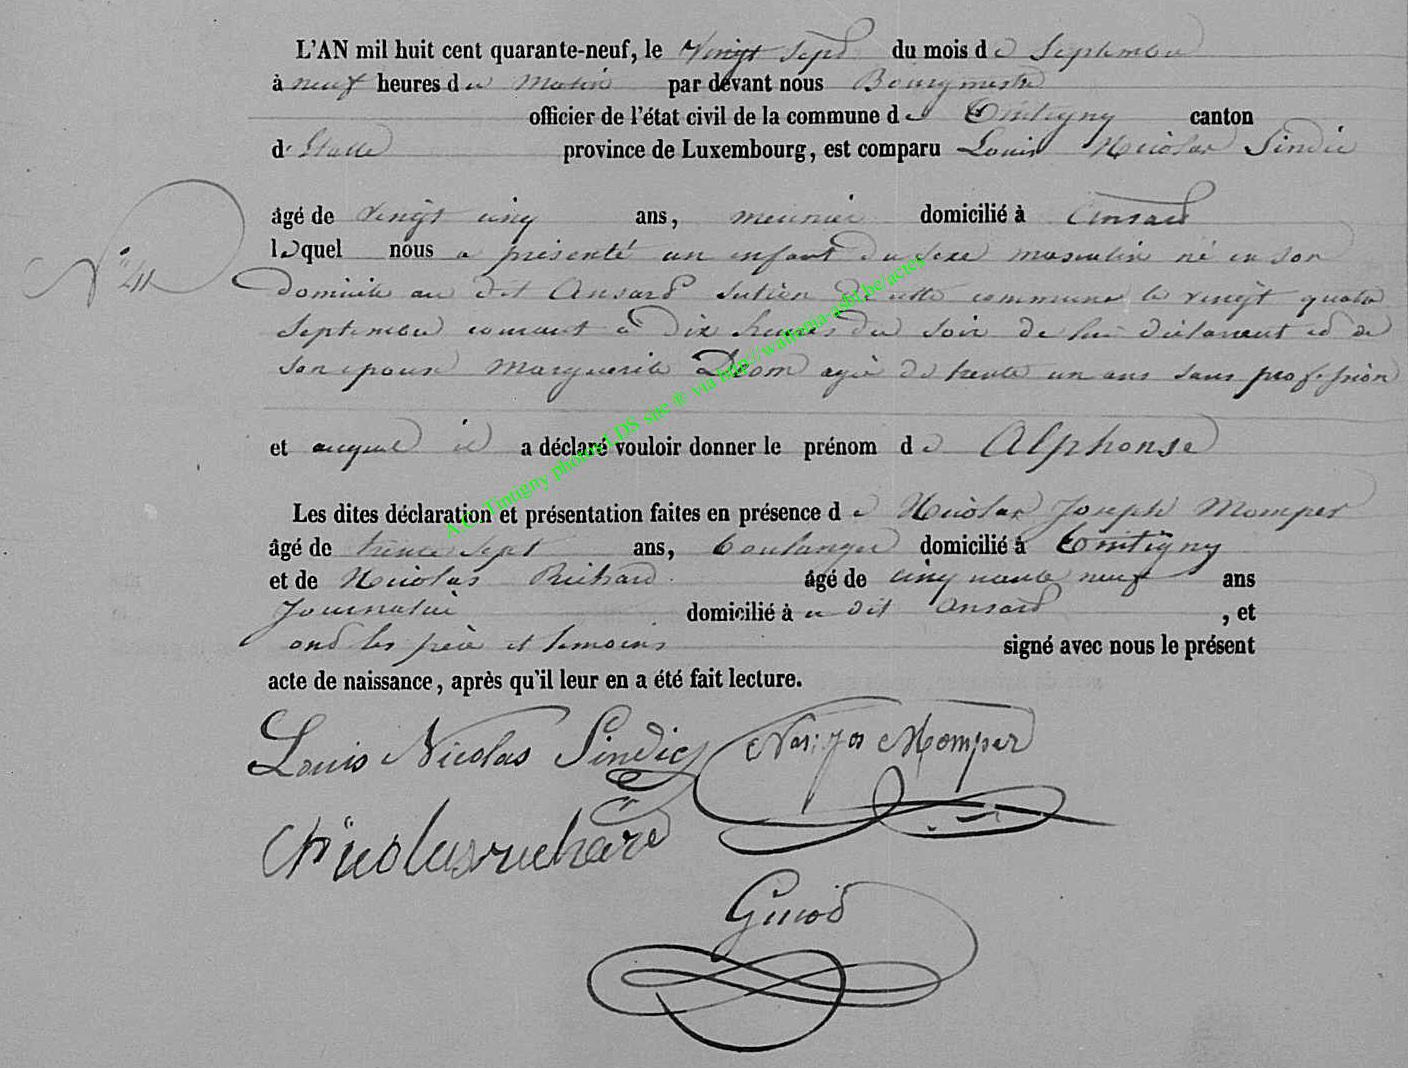 L'AN mil huit cent quarante-neuf, le vingt sept du mois de Septembre
à neuf heures du Matin par devant nous Bourgmestre
officier de l'état civil de la commune de Tintigny canton
d'Etalle province de Luxembourg, est comparu Louis Nicolas Sindic
âgé de vingt cinq ans, meunier domicilié à Ansard
lequel nous a présenté un enfant du sexe masculin né en son
N° 41
domicile au dit Ansard section de cette commune le vingt quatre
Septembre courant à dix heures du soir de lui déclarant et de
son épouse Marguerite Drom agée de trente un ans sans profession
et auquel il a déclaré vouloir donner le prénom de Alphonse
Les dites déclaration et présentation faites en présence de Nicolas Joseph Momper
âgé de trente sept ans, boulanger domicilié à Tintigny
et de Nicolas Richard âgé de cinquante neuf ans
Journalier domicilié à u dit Ansard, et
ont les père et témoins signé avec nous le présent
acte de naissance, après qu'il leur en a été fait lecture.
Louis Nicolas Sindic Nas: Jos Momper
Nicolas richard
A.C. Tintigny photos LDS site ® via http://wallonia-asbl.be/actes